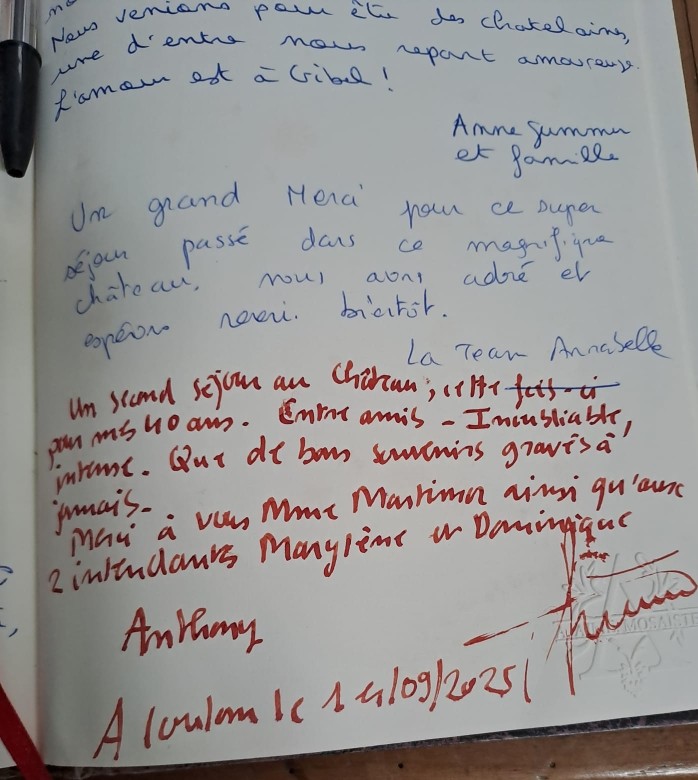 Nous venions pour être des chatelains,
une d'entre nous repart amoureuse.
L'amour est à Cibel !
Anne Summer
et famille
Un grand Merci pour ce super
séjour passé dans ce magnifique
château, nous avons adoré et
espérons revenir bientôt.
La Team Annabelle
Un second séjour au Château, cette fois-ci
pour mes 40 ans. Entre amis - Inoubliable,
intense. Que de bons souvenirs gravés à
jamais.
Merci à vous Mme Martimor ainsi qu'aux
2 intendants Marylène et Dominique
Anthony
A Coulom le 14/09/2025
MOSAISTE